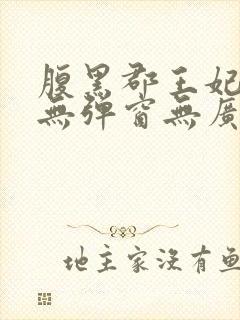 腹黑郡王妃
無彈窗無廣
地主家沒有魚